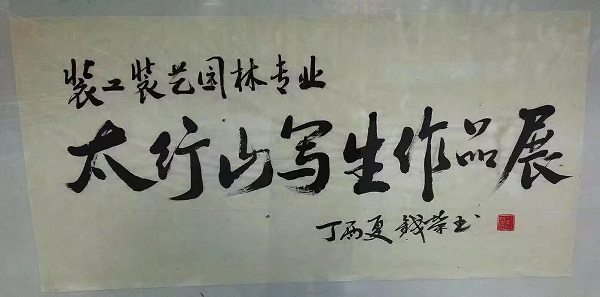 装工装艺园林专业
太行山写生作品展
丁酉夏 钱荣书